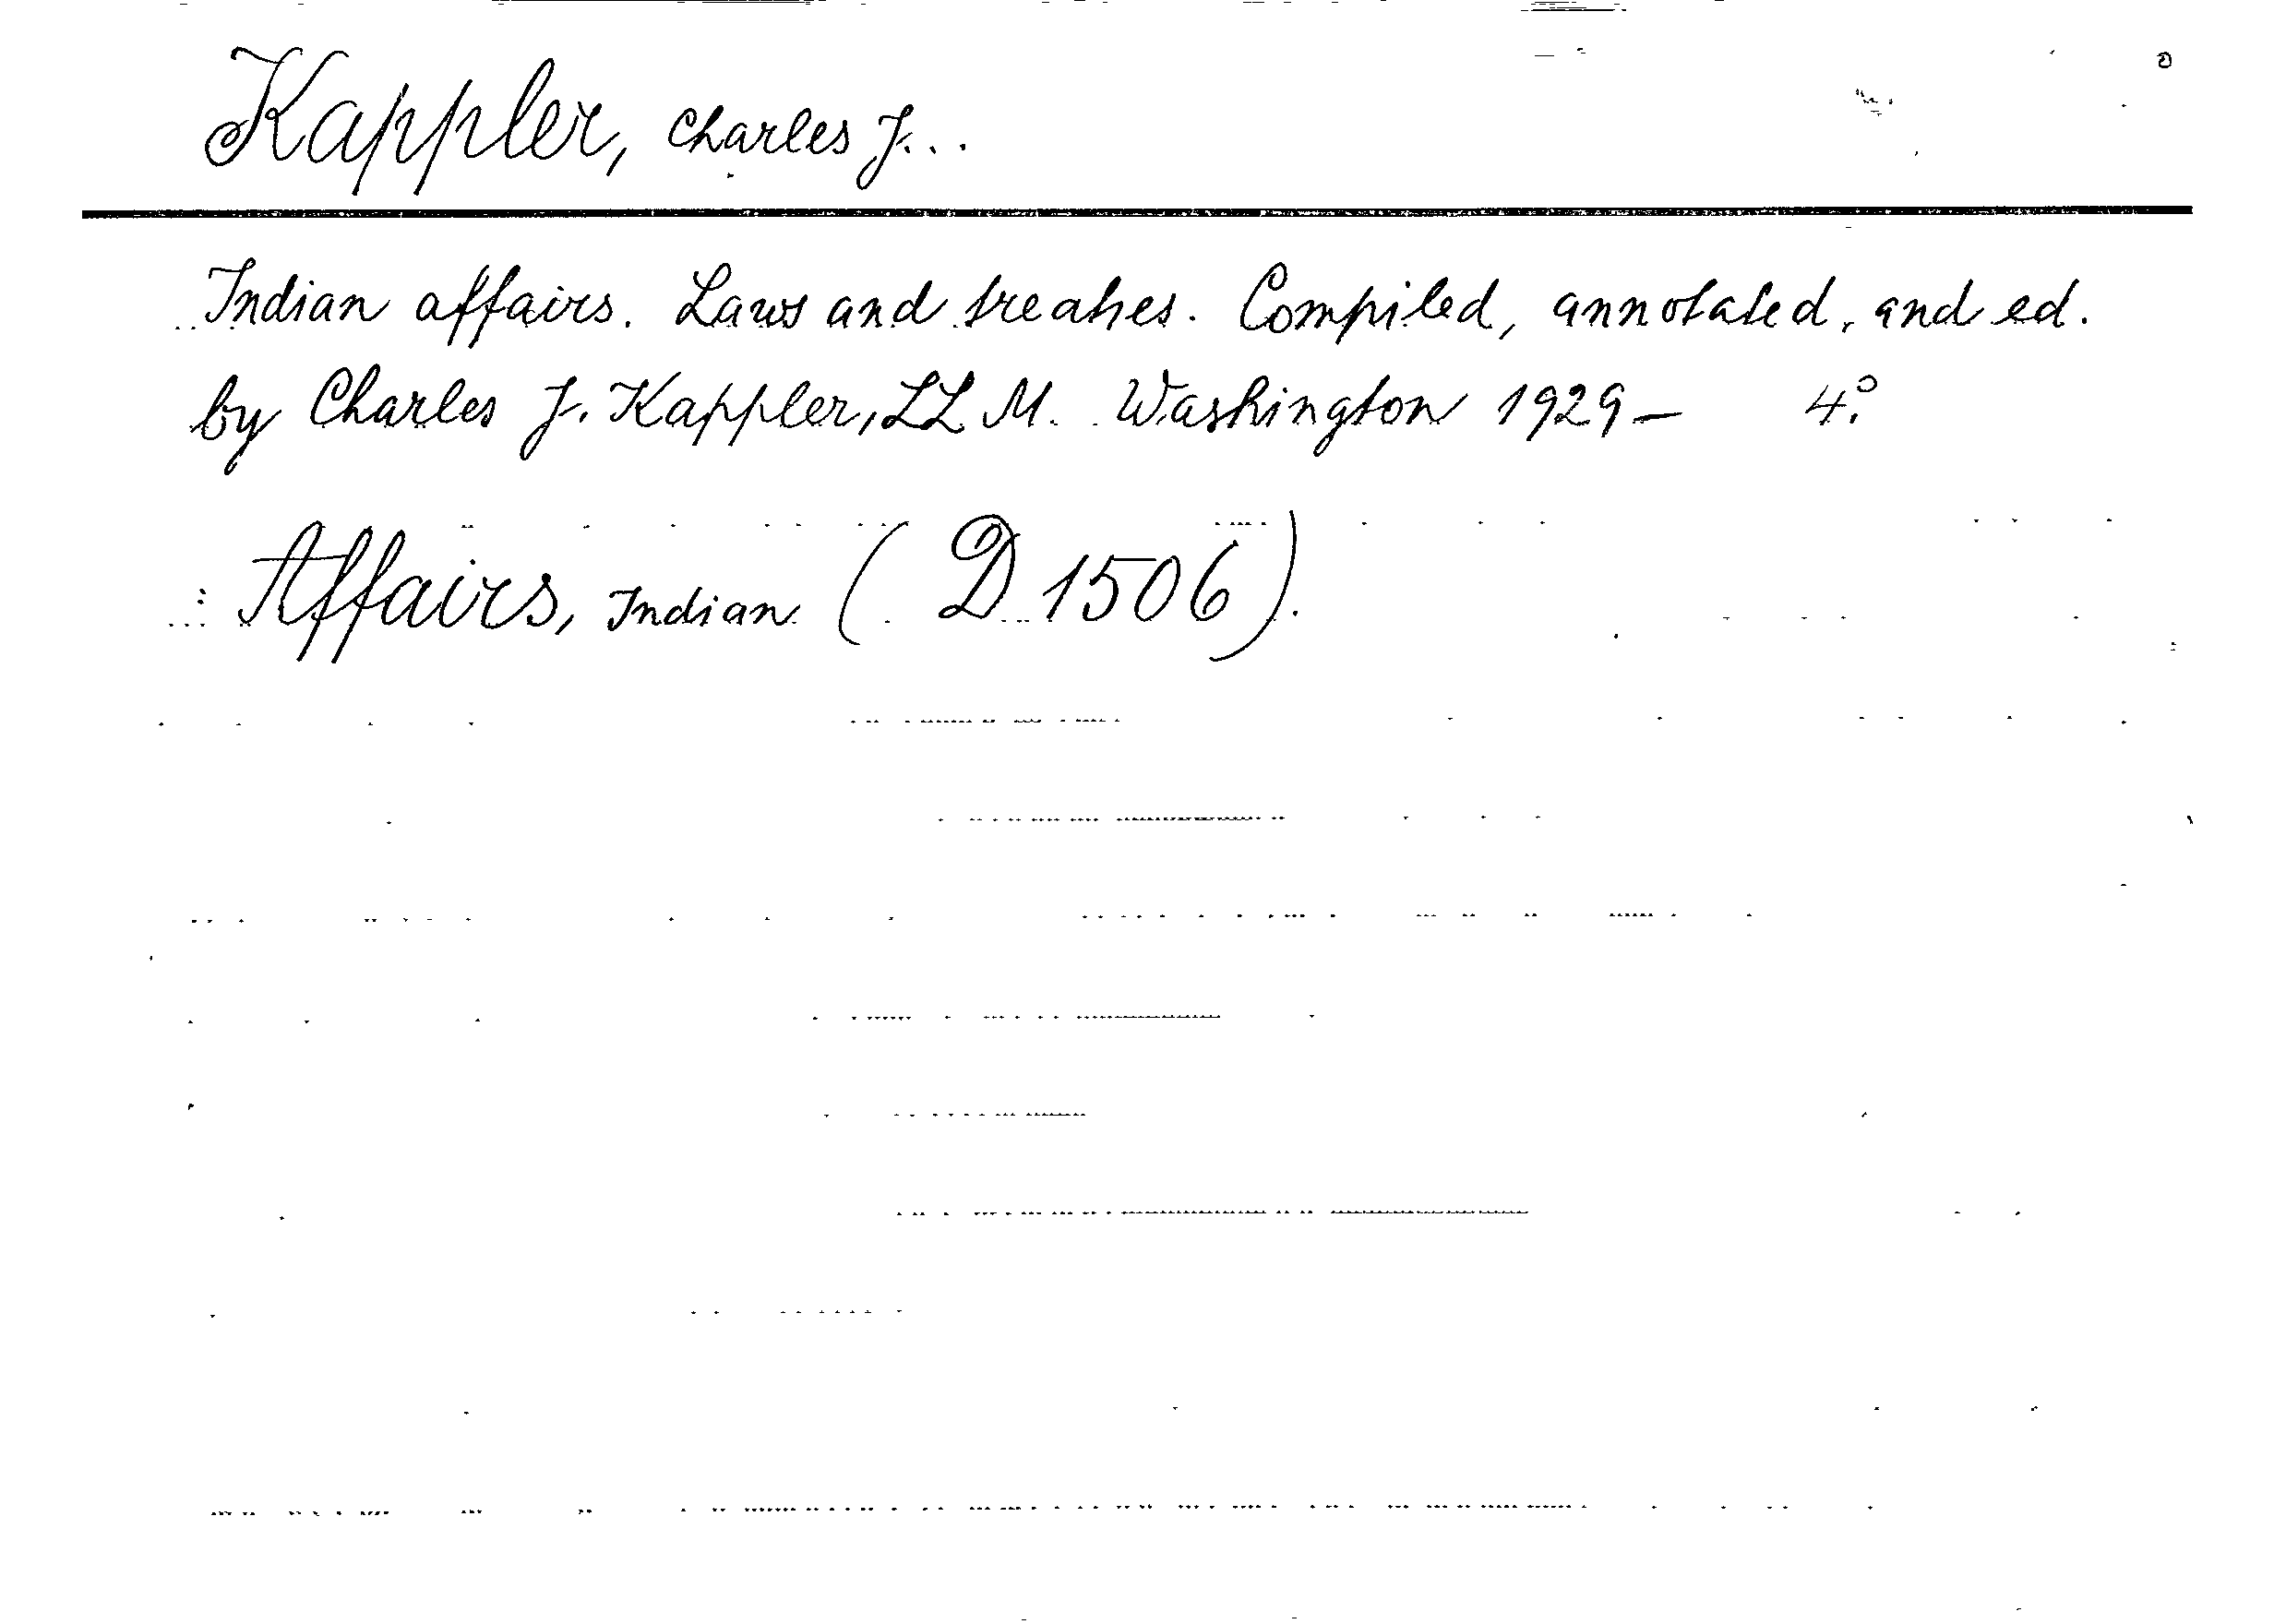 Kappler, Charles J...
Indian affairs. Laws and treaties. Compiled, annotated, and ed.
by Charles J. Kappler, LL M. Washington 1929 – 4°.
: Affairs, Indian (D 1506).